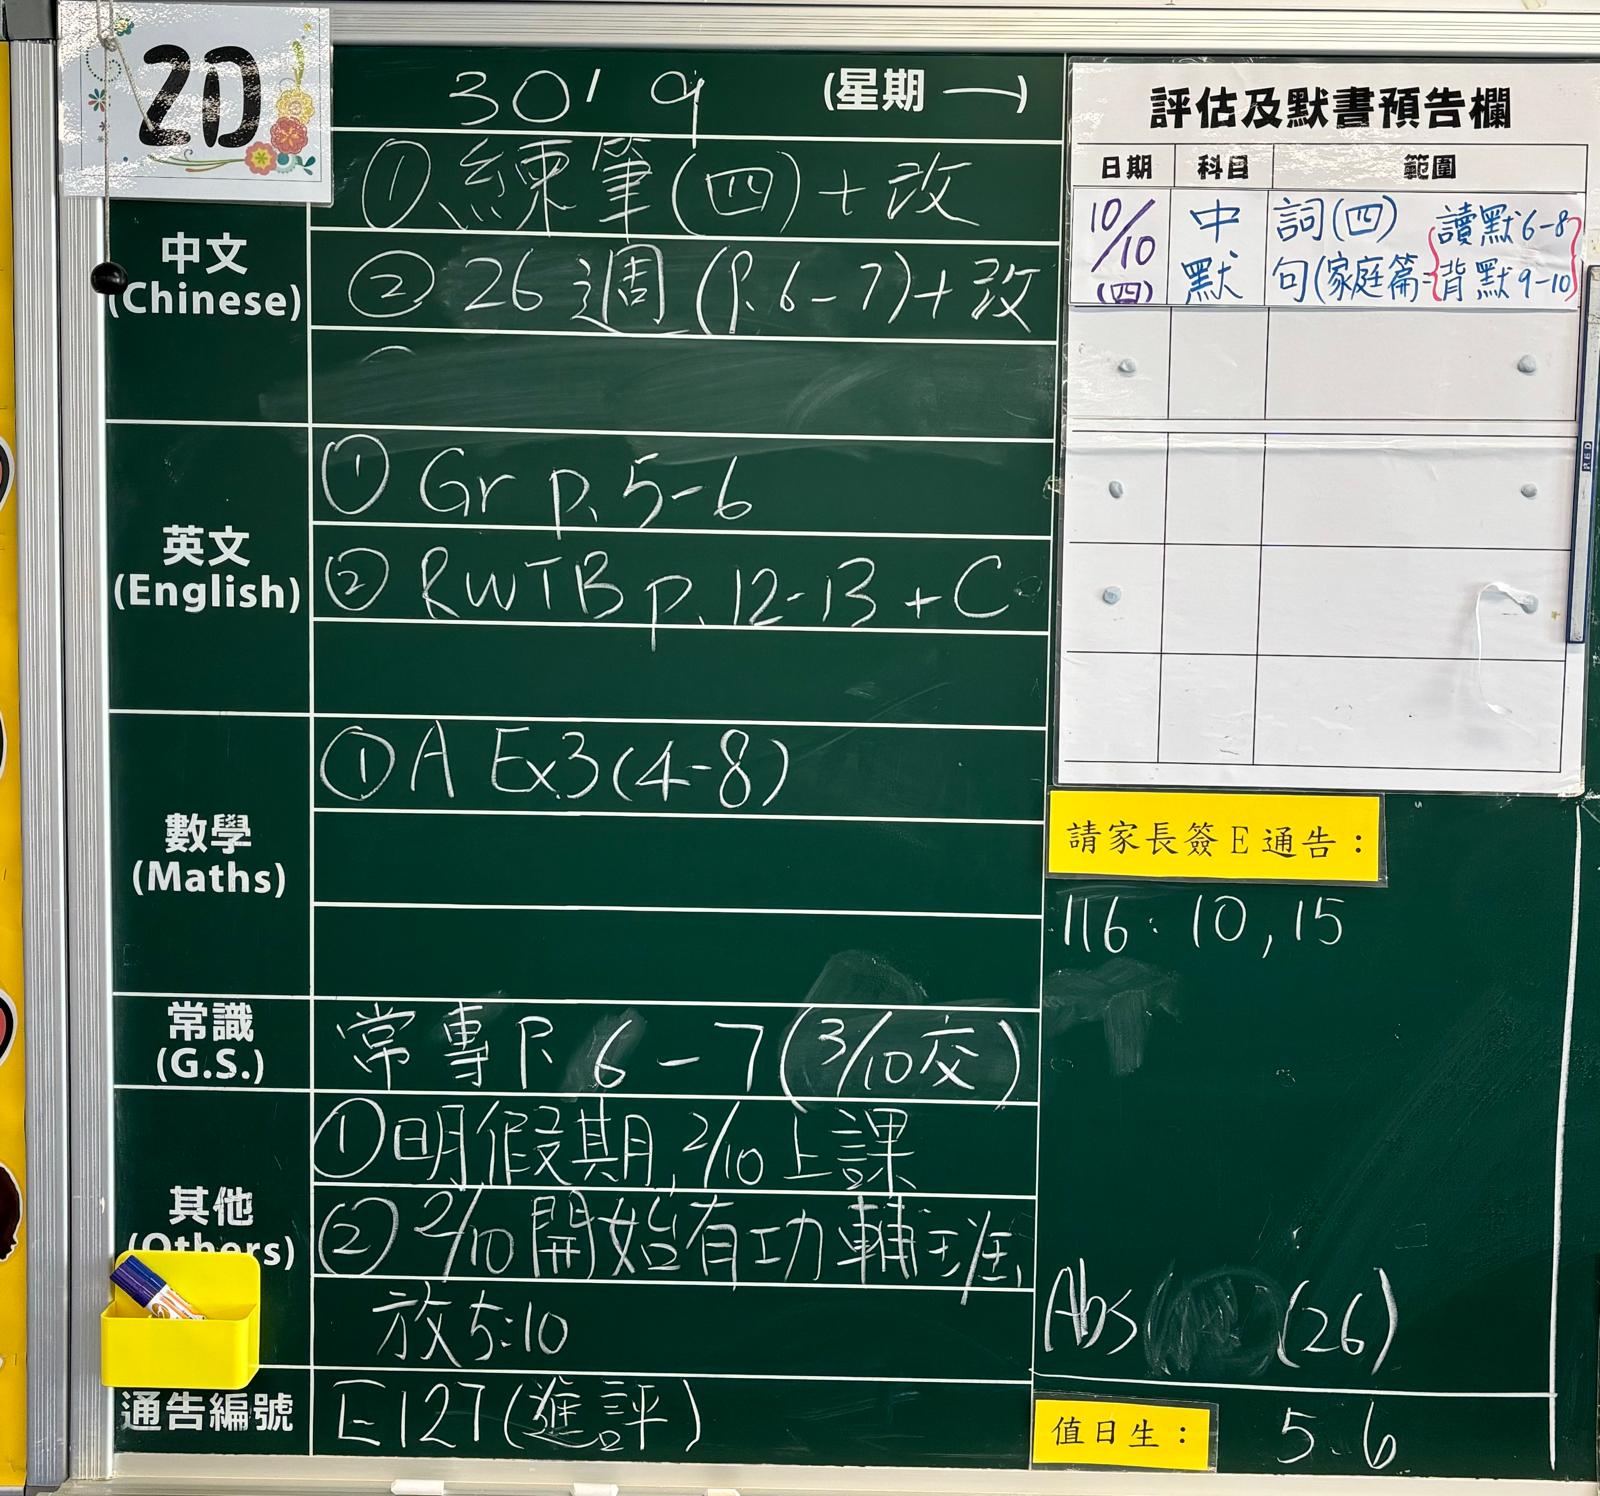 2D
30' 9 (星期 一)
中文
(Chinese)
① 練筆(四)+改
② 26週 (P.6-7)+改
英文
(English)
① Gr p.5-6
② RWTB p.12-13 + C
數學
(Maths)
① A Ex3(4-8)
常識
(G.S.)
常專P. 6-7(3/10交)
其他
(Others)
①明假期,2/10上課
②2/10開始有功輔班
放5:10
通告編號
E127(進評)
評估及默書預告欄
日期 科目 範圍
10/10 (四)
中默
詞(四)
句(家庭篇:
讀默6-8
背默9-10
請家長簽E通告:
116: 10, 15
Abs (26)
值日生: 5.6